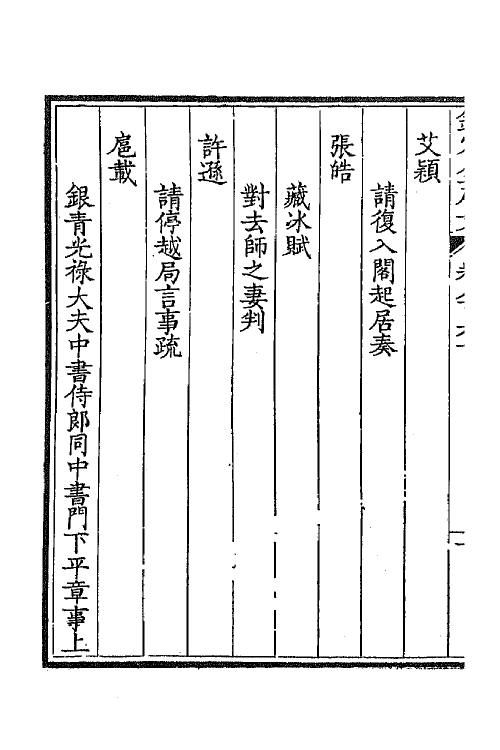 艾穎
請復入閣起居奏
張皓
藏冰賦
對去師之妻判
許遜
請停越局言事疏
扈蒙
銀青光祿大夫中書侍郎同中書門下平章事上